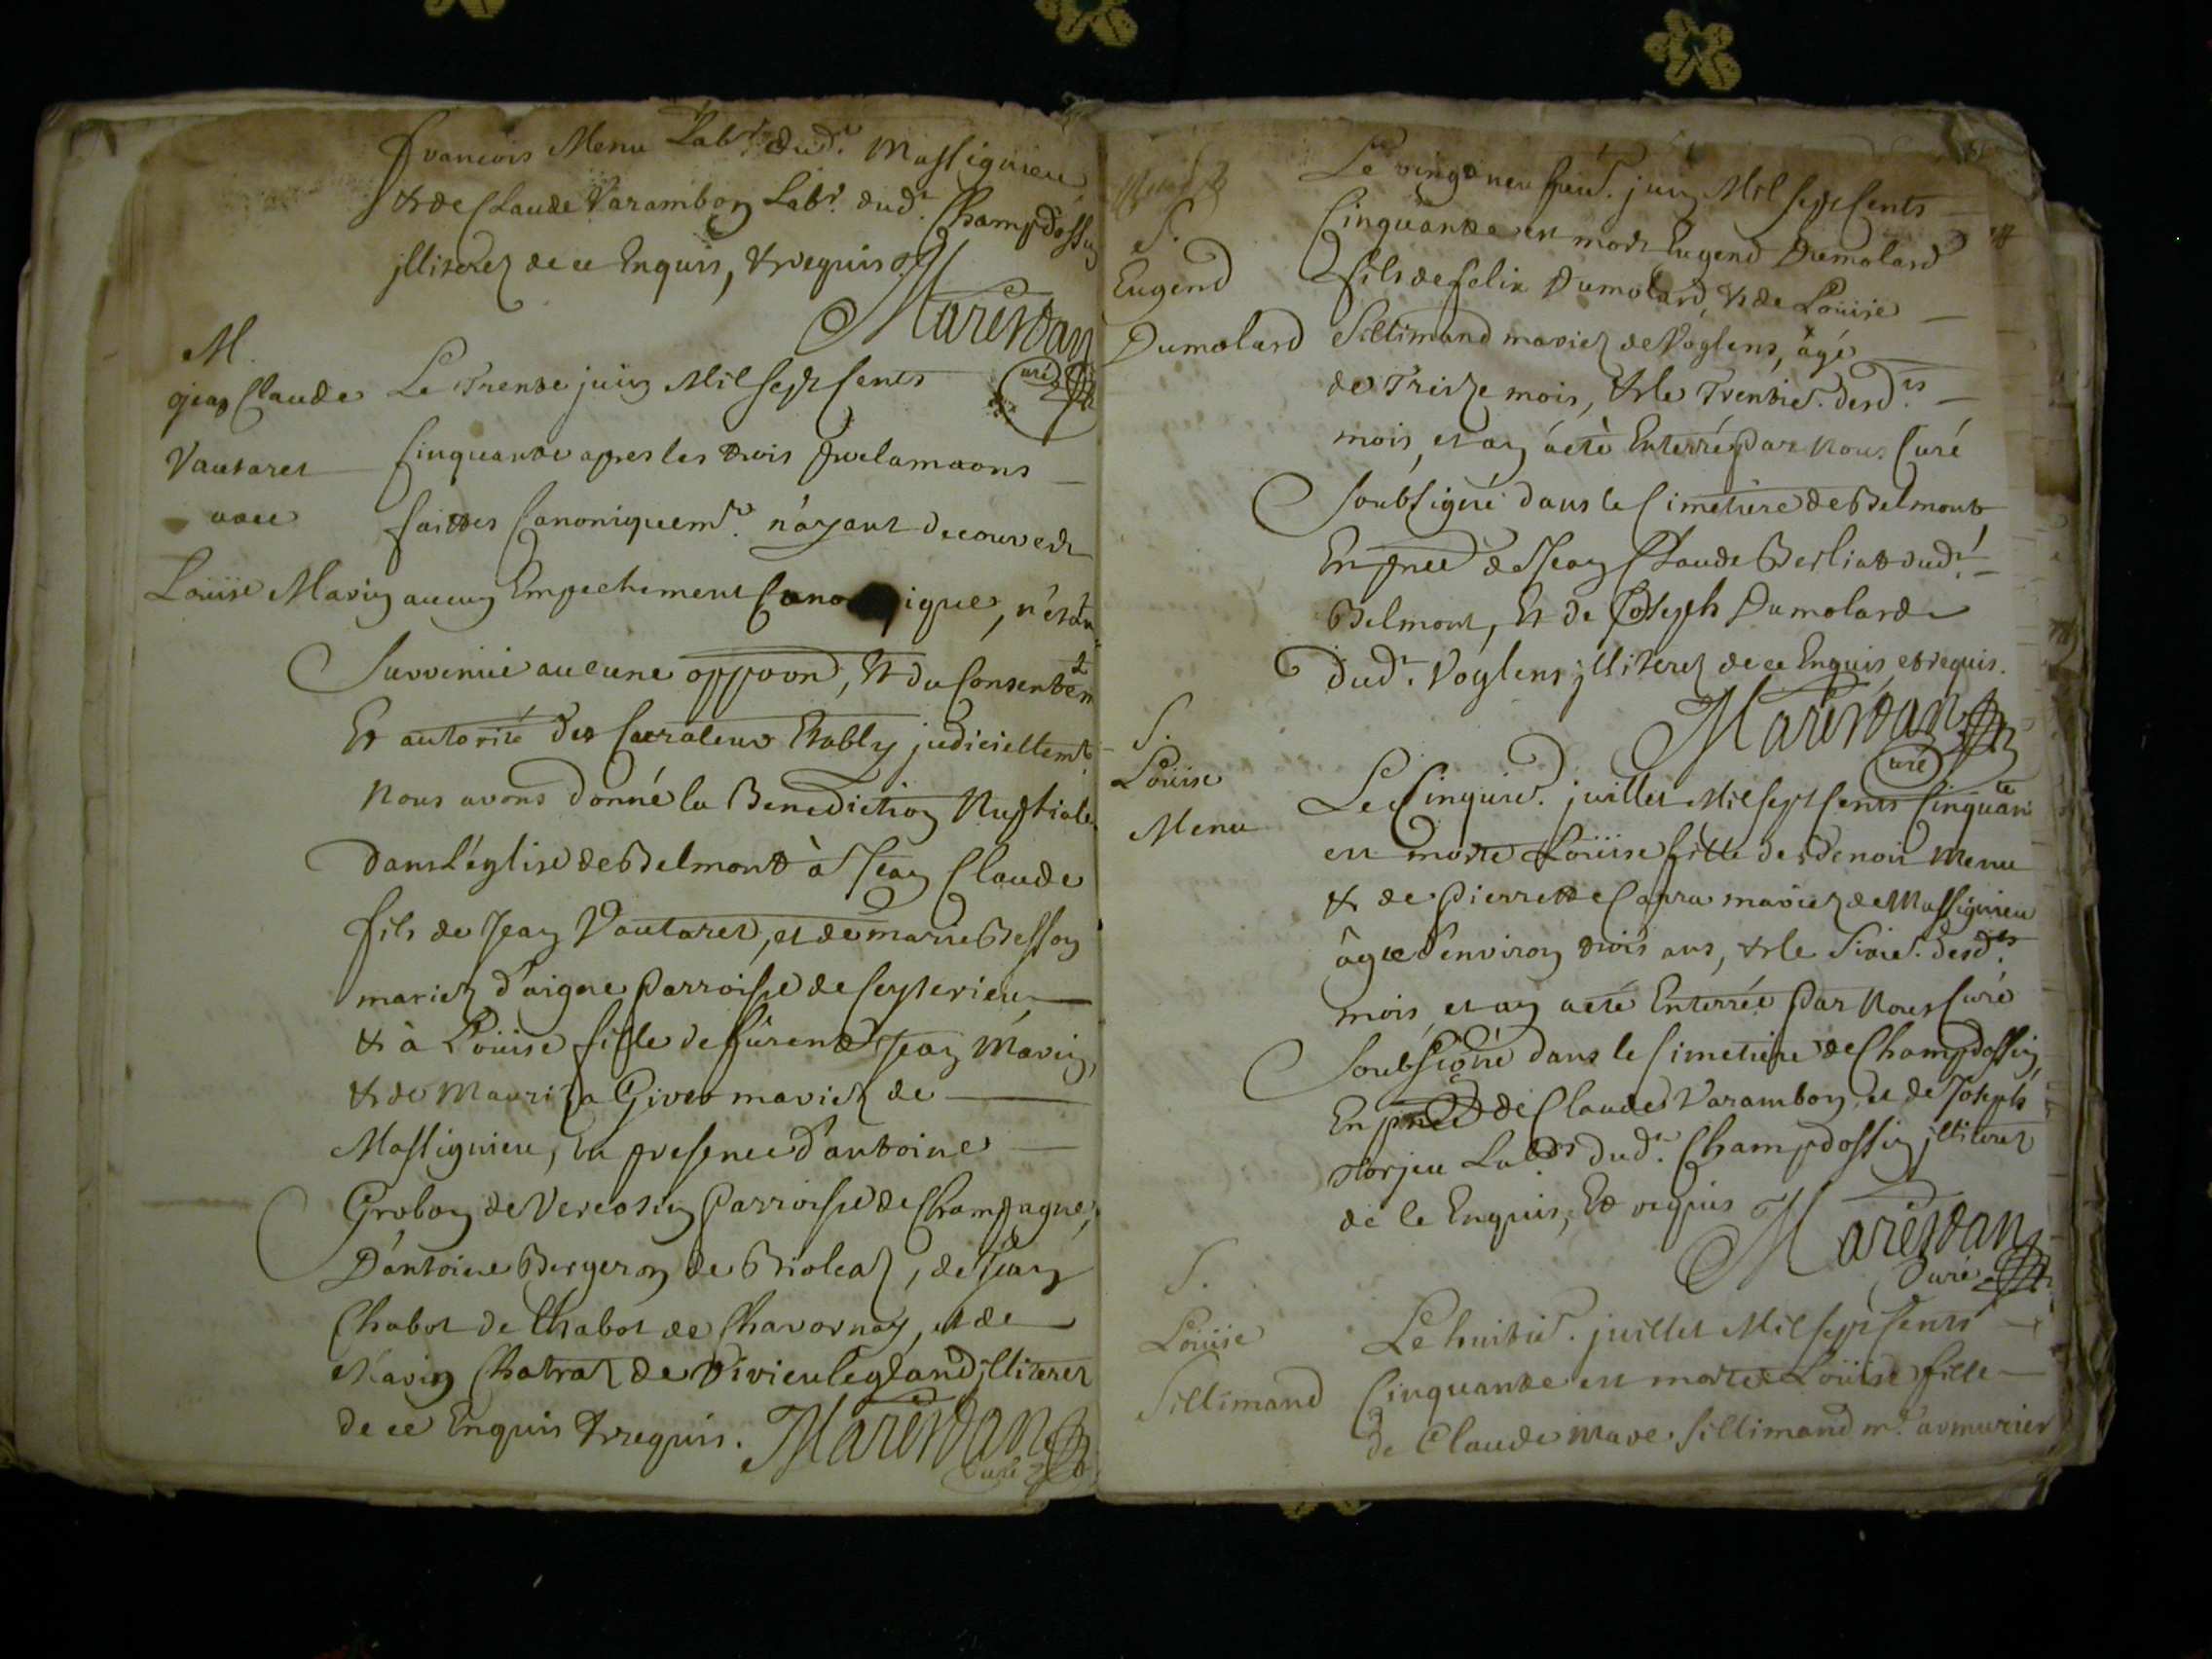 françois Menu Labr. dud. Massignieu
et de Claude Varambon Labr. dudt. Champdossin
illiterez de ce Enquis, et requis
Marestan
curé
M.
jean Claude
Vautaret
avec
Louise Marin
Le Trente juin Mil sept cents
Cinquante apres les trois proclamaons
faittes Canoniquemt. n'ayant decouvert
aucun Empechement Canonique, n'étant
Survenüe aucune oppoon, et du Consentemt
Et autorité des Curateur Etably judiciellemt.
Nous avons donné la Benediction Nuptiale
dans l'église de Belmont à Jean Claude
fils de Jean Vautaret, et de marie Besson
mariez d'aigne parroisse de Ceyserieu
et à Loüise fille de fürent Jean Marin,
et de Mauriza Givet mariez de
Massignieu, En presence d'antoine
Grobon de Vereosin parroisse de Champagne,
D'antoine Bergeron de Brioleaz, de Jean
Chabot de Chabot de Chavornay, et de
Marin Chatraz de Virieulegrand illiterez
de ce Enquis et requis. Marestan
Curé
S.
Eugend
Dumolard
Le vingt neufvie. juin Mil sept Cents
Cinquante est mort Eugend Dumolard
fils de felix Dumolard, et de Loüise
Sillimand mariez de Voglens, âgé
de Treize mois, et le Trentie. desd.ts
mois, et an àeté Enterré par Nous Curé
Soubsigné dans le Cimetiere de Belmont
En pnce de Jean Claude Berliat dudt.
Belmont, Et de Joseph Dumolard
dudt. Voglens illiterez de ce Enquis, et requis.
Marestan
curé
S.
Loüise
Menu
Le Cinquie. juillet Mil sept Cents Cinquante
est morte Loüise fille de Benoit Menu
et de pierrette Carra mariez de Massignieu
âgée d'environ trois ans, et le Sixie. desd.ts
mois, et an aeté Enterrée par Nous Curé
Soubsigné dans le Cimetiere de Champdossin,
En pnce de Claude Varambon, et de Joseph
Torjeu Labrs. dudt. Champdossin illiterez
de le Enquis, Et requis
Marestan
Curé
S.
Loüise
Sillimand
Le huitie. juillet Mil sept Cents
Cinquante est morte Loüise fille
de Claude Marc Sillimand me. armurier